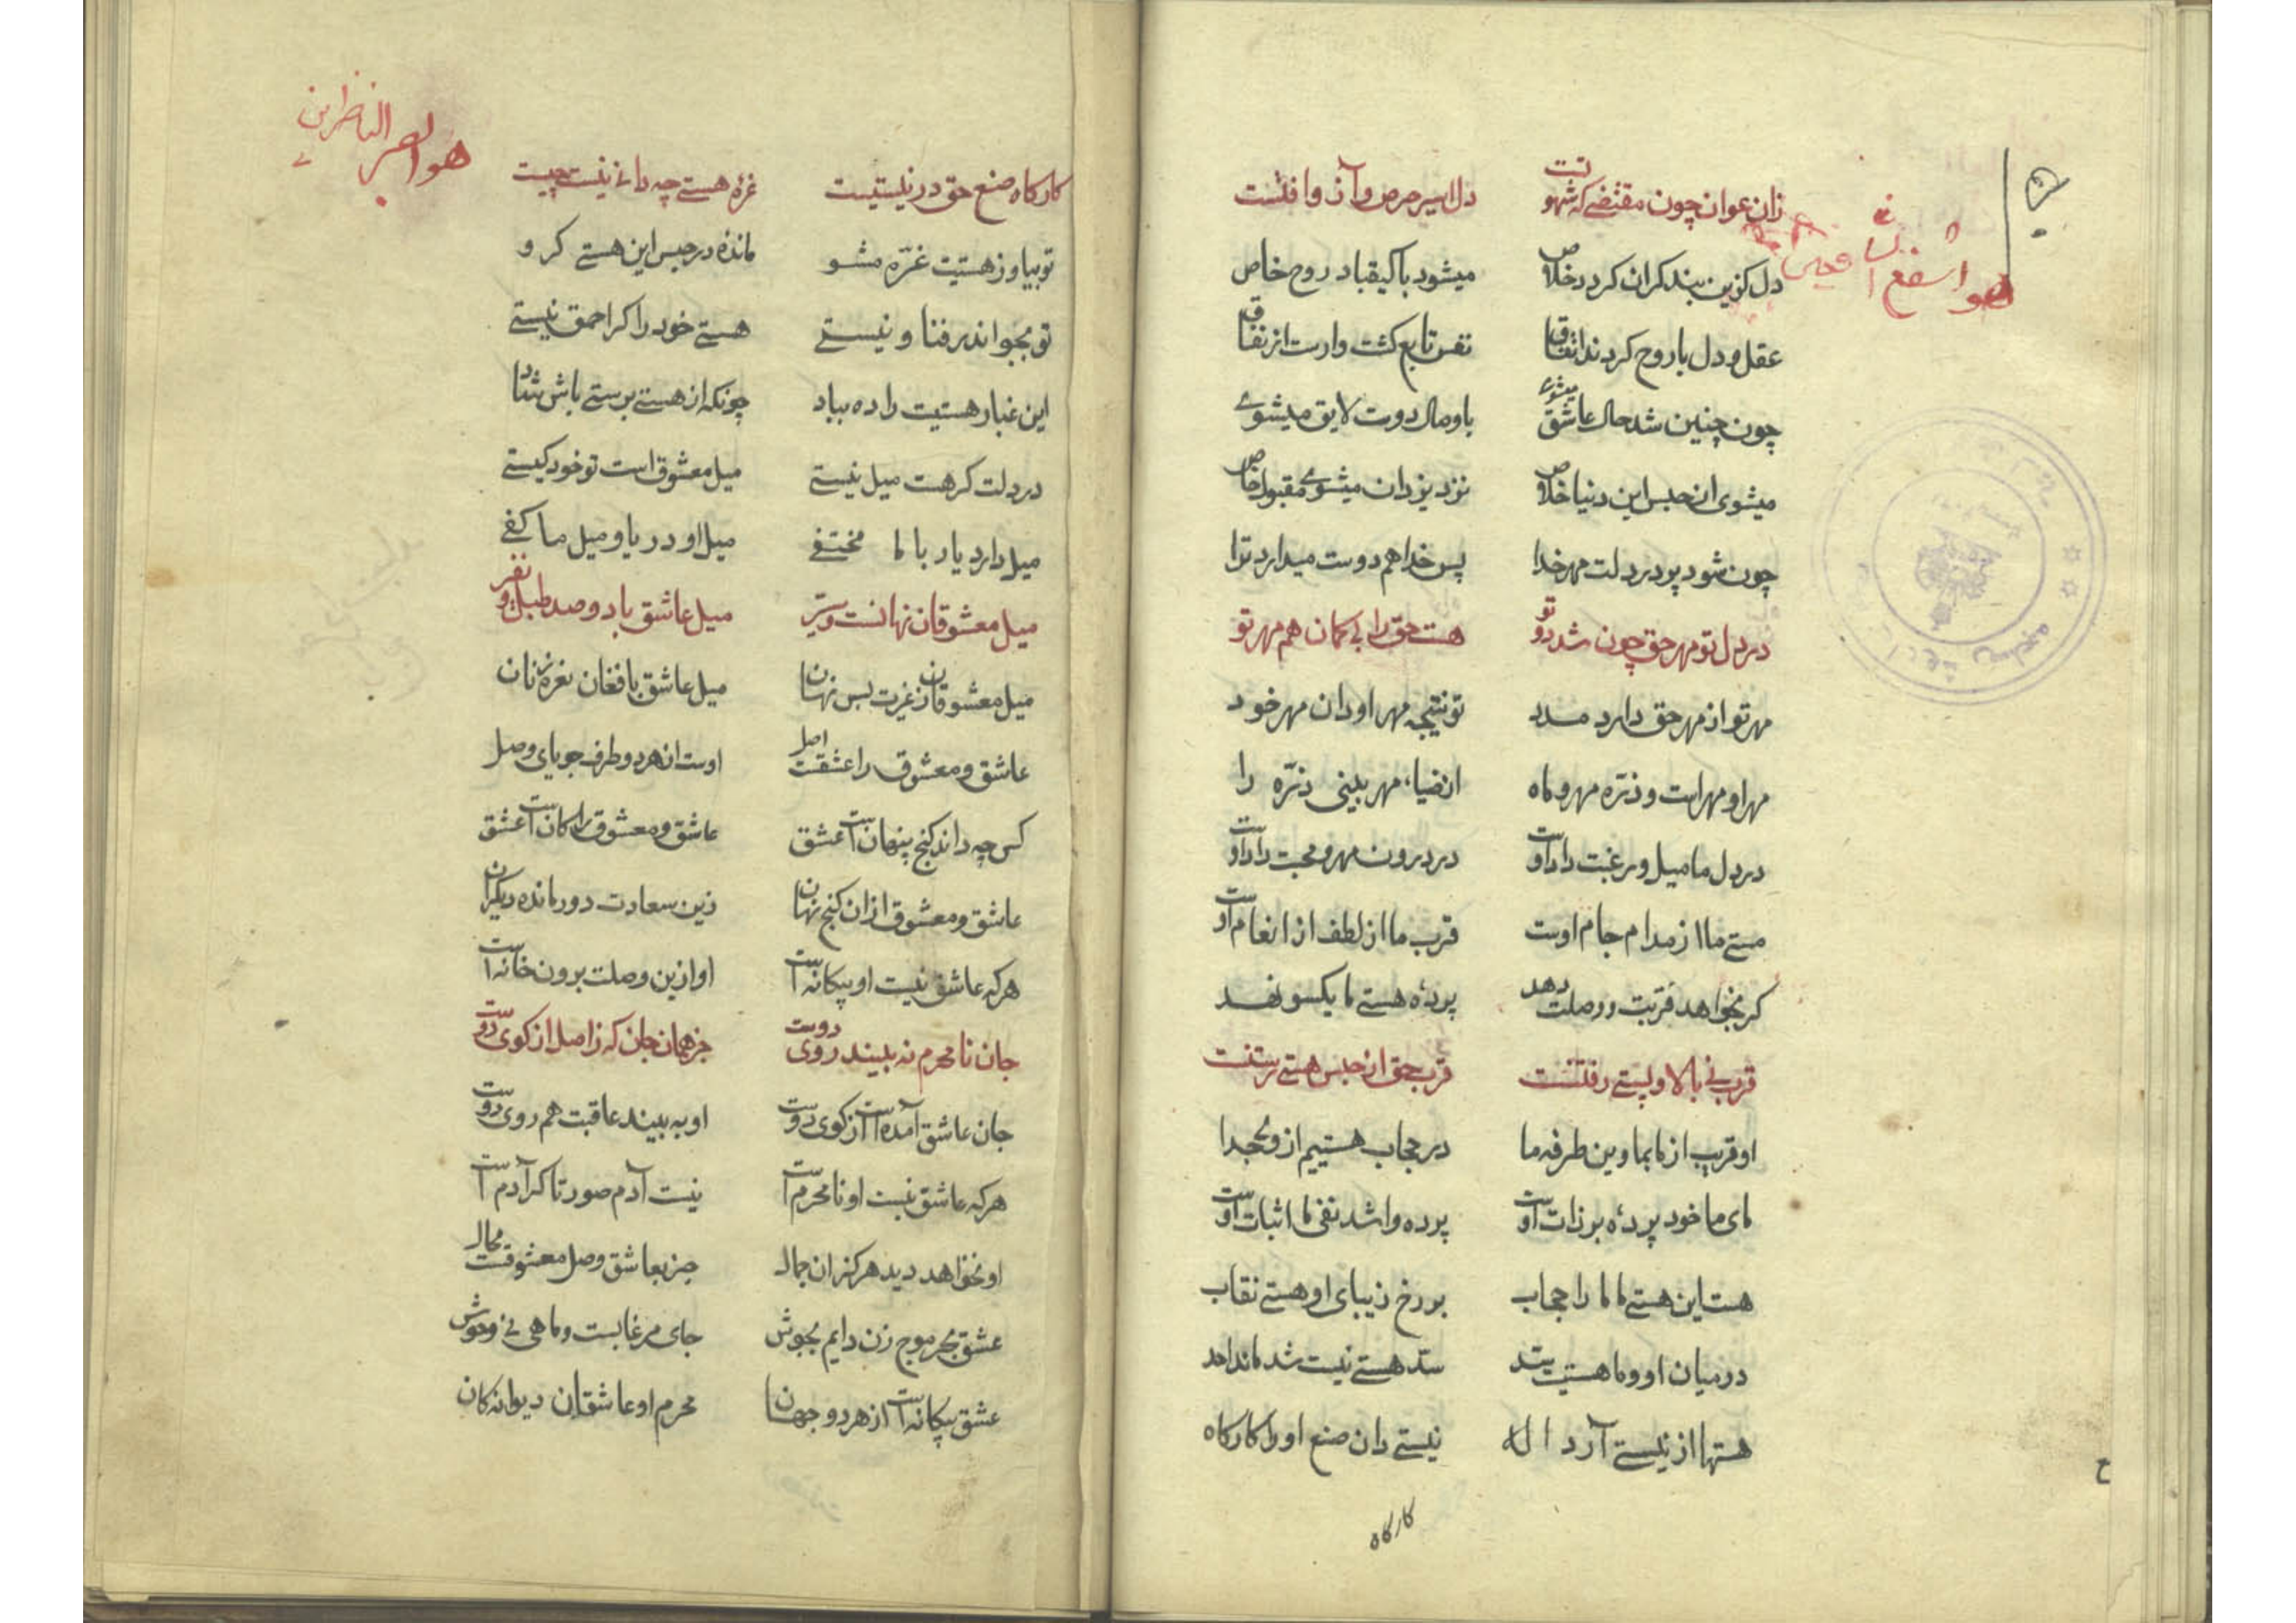 هو اشفع الشافعین
زان عوان چون مقتضی که شهوتست دل اسیر حرص و آز و آفتست
دل کزین بند کران کردد خلاص میشود با کیقباد روح خاص
عقل و دل با روح کردند اتفاق نفس تابع کشت وارست از نفاق
چون چنین شد حال عاشق میشوی با وصال دوست لایق میشوی
میشوی از حبس این دنیا خلاص نزد یزدان میشوی مقبول خاص
چون شود پر در دلت مهر خدا پس خدا هم دوست میدارد ترا
در دل تو مهر حق چون شد دوتو هست حق را بی کمان هم مهر تو
مهر تو از مهر حق دارد مدد تو نتیجه مهر او دان مهر خود
مهر او مهراست و ذره مهر و ماه از ضیاء مهر بینی ذره را
در دل ما میل و رغبت داد اوست در درون مهر و محبت داد اوست
مستی ما از مدام جام اوست قرب ما از لطف از انعام اوست
کر بخواهد قربت و وصلت دهد پردهٔ هستی ما یکسو نهد
قرب نی بالا و پستی رفتنست قرب حق از حبس هستی رستنست
او قریب از ما بما وین طرفه ما در حجاب هستیم از وی جدا
مای ما خود پردهٔ بر ذات اوست پرده واشد نفی ما اثبات اوست
هست این هستی ما ما را حجاب بر رخ زیبای او هستی نقاب
درمیان او و ما هستیت سد سد هستی نیست شد ماند احد
هستها از نیستی آرد اله نیستی دان صنع او را کارکاه
کارکاه
هو ابصر الناظرین
کارکاه صنع حق در نیستیست غرهٔ هستی چه دانی نیست چیست
تو بیا و ز هستیت غره مشو ماندهٔ در حبس این هستی کرو
تو بجو اندر فنا و نیستی هستی خود را کر احمق نیستی
این غبار هستیت را ده بباد چونکه از هستی برستی باش شاد
در دلت کر هست میل نیستی میل معشوق است تو خود کیستی
میل دارد یار با ما مختفی میل او دریا و میل ما کفی
میل معشوقان نهانست و ستیر میل عاشق با دو صد طبل و نفیر
میل معشوقان ز غیرت بس نهان میل عاشق با فغان نعره زنان
عاشق و معشوق را عشقست اصل اوست از هر دو طرف جویای وصل
کس چه داند کنج پنهان است عشق عاشق و معشوق را کان است عشق
عاشق و معشوق ازان کنج نهان زین سعادت دور مانده دیکران
هر که عاشق نیست او بیکانه است او ازین وصلت برون خانه است
جان نامحرم نه بیند روی دوست جز همان جان که ز اصل از کوی دوست
جان عاشق آمده است از کوی دوست او به بیند عاقبت هم روی دوست
هر که عاشق نیست او نامحرم است نیست آدم صورتا کر آدم است
او نخواهد دید هرکز ان جمال جز بعاشق وصل معشوقست محال
عشق بحر موج زن دایم بجوش جای مرغابیست و ماهی نی وحوش
عشق بیکانه است از هر دو جهان محرم او عاشقان دیوانه کان